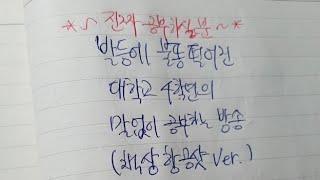 *~ 진짜 공부하실분 ~*
발등에 불똥 떨어진
대학교 4학년의
말없이 공부하는 방송
(책상 항공샷 Ver.)